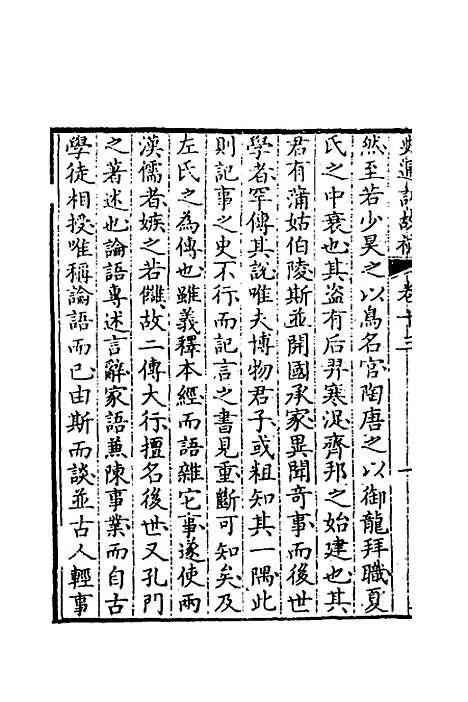 史通訓故補 卷十三 一
然至若少昊之以鳥名官陶唐之以御龍拜職夏
氏之中衰也其盜有后羿寒浞齊邦之始建也其
君有蒲姑伯陵斯並開國承家異聞奇事而後世
學者罕傳其說唯夫博物君子或粗知其一隅此
則記事之史不行而記言之書見重斷可知矣及
左氏之為傳也雖義釋本經而語雜它事遂使兩
漢儒者嫉之若讎故二傳大行擅名後世又孔門
之著述也論語專述言辭家語蕪陳事業而自古
學徒相授唯稱論語而已由斯而談並古人輕事